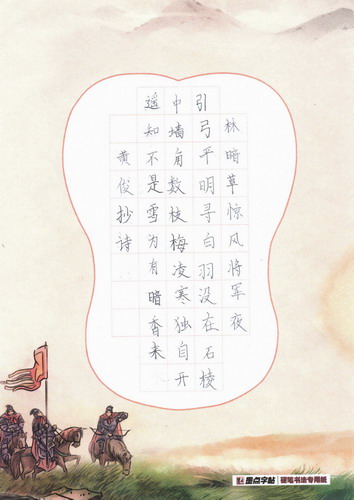 林暗草惊风将军夜
引弓平明寻白羽没在石棱
中墙角数枝梅凌寒独自开
遥知不是雪为有暗香来
黄俊抄诗
墨点字帖 硬笔书法专用纸